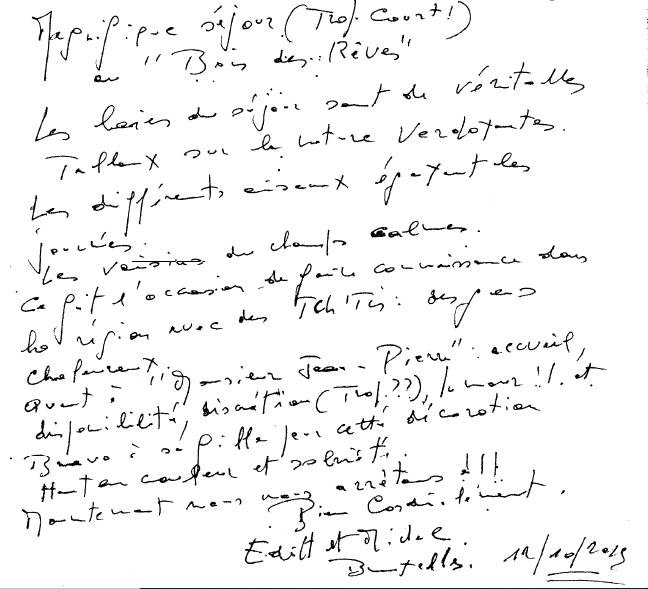 Magnifique séjour (Trop Court!)
au "Bois des Rêves"
Les baies du séjour sont de véritables
Tableaux sur la nature Verdoyantes.
Les différents oiseaux égayent les
journées.
Les voisins du champs calmes.
Ce fut l'occasion de faire connaissance dans
la région avec des Tch'Tis: des gens
chaleureux.
Quant à "Monsieur Jean-Pierre": accueil,
disponibilité, discrétion (Trop??), humour!!. et
Bravo à sa fille pour cette décoration
Haut en couleur et sobriété.
Maintenant nous nous arrêtons !!!
Bien Cordialement.
Edith et Michel.
Bruxelles. 12/10/2019